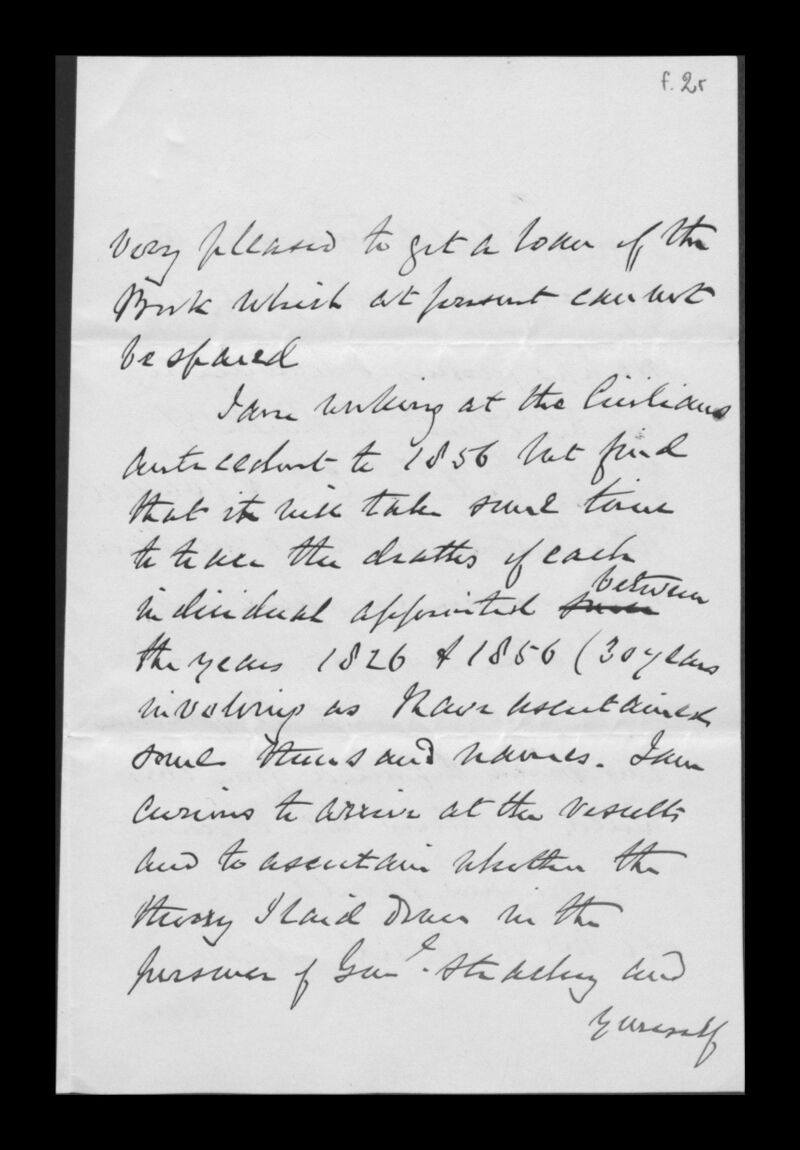 f. 2r
very pleased to get a loan of the
Book which at present cannot
be spared
I am working at the Civilians
antecedent to 1856 but find
that it will take some time
to trace the deaths of each
individual appointed between
the years 1826 & 1856 (30 years
involving as I have ascertained
some thousand names. I am
curious to arrive at the results
and to ascertain whether the
theory I laid down in the
presence of Genl. Strachey and
yourself